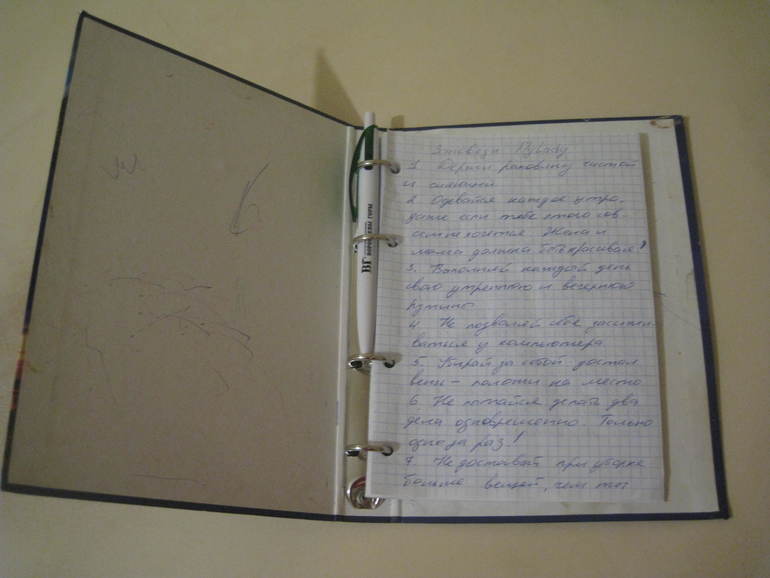 Заповеди FlyLady
1. Держи раковину чистой
и сияющей
2. Одевайся каждое утро,
даже если тебе этого сов-
сем не хочется. Жена и
мама должна быть красивой!
3. Выполняй каждый день
свою утреннюю и вечернюю
рутину
4. Не позволяй себе засижи-
ваться у компьютера.
5. Убирай за собой. Достал
вещь - положи на место
6. Не пытайся делать два
дела одновременно. Только
одно за раз!
7. Не доставай при уборке
больше вещей, чем
ВГ
ВОРОБЬЕВЫ ГОРЫ